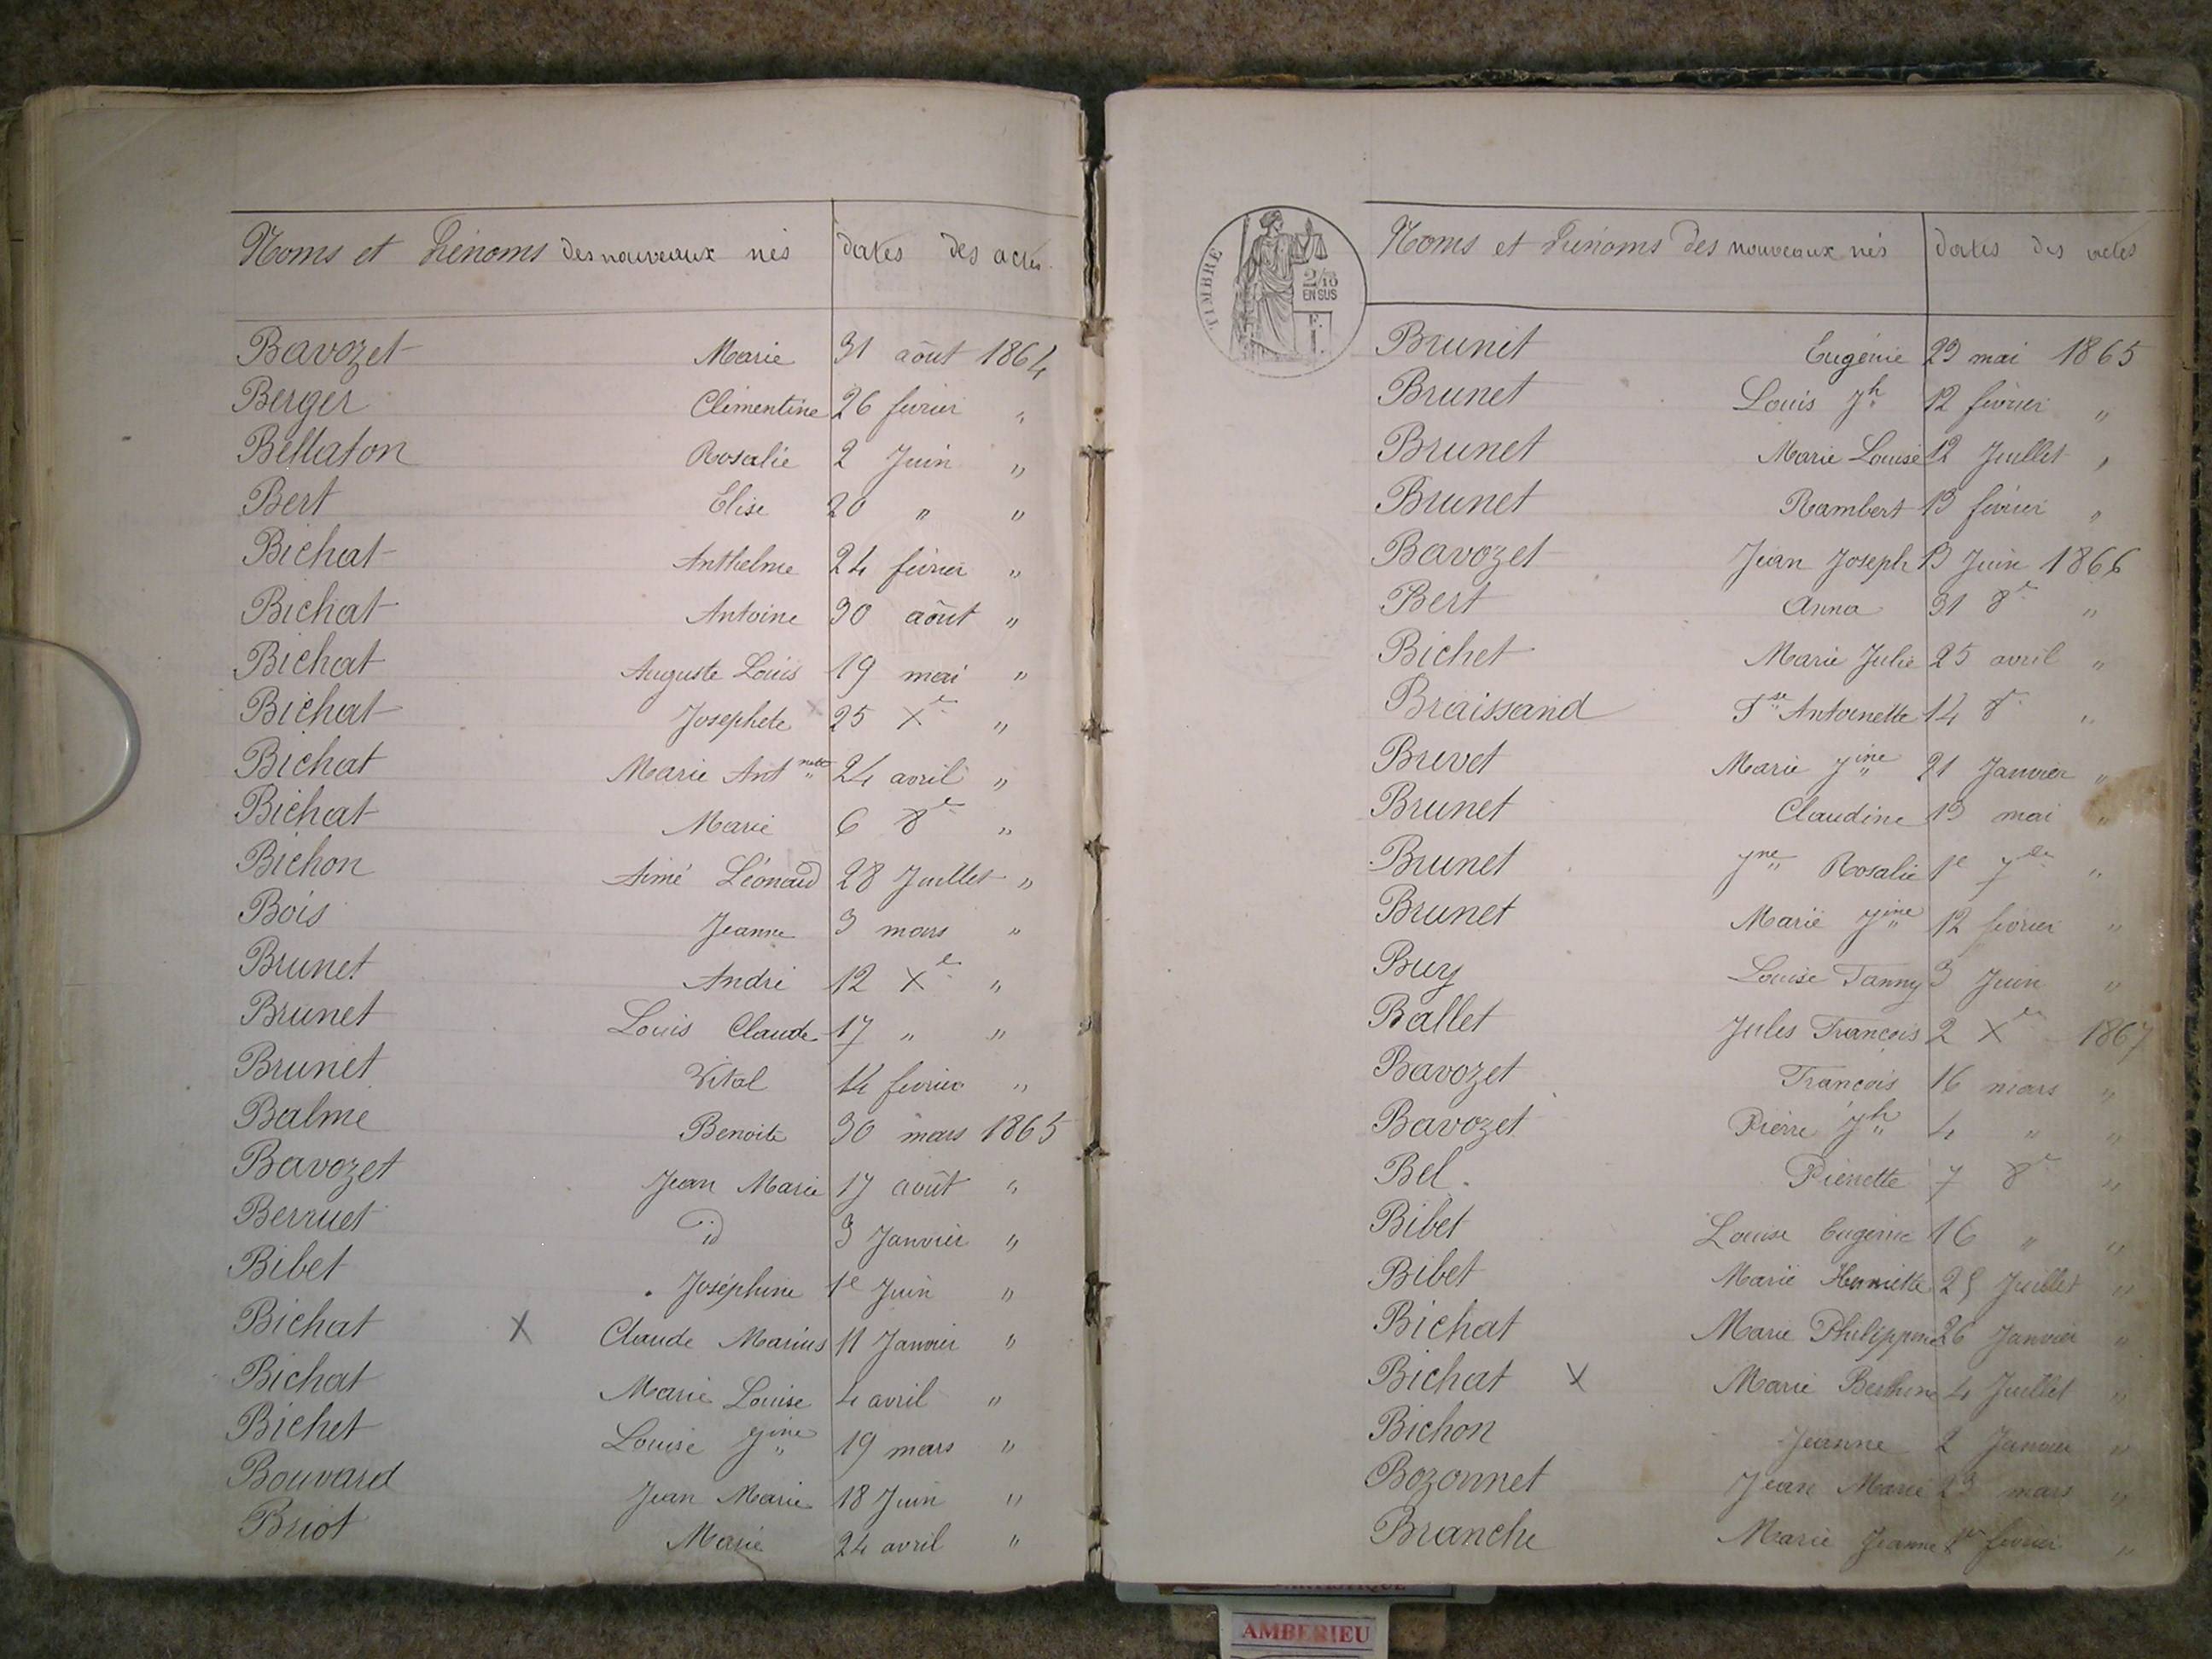 Noms et Prénoms des nouveaux nés dates des actes
Bavozet Marie 31 août 1864
Berger Clémentine 26 février "
Bellaton Rosalie 2 Juin "
Bert Elise 20 " "
Bichat Anthelme 24 février "
Bichat Antoine 30 août "
Bichat Auguste Louis 19 mai "
Bichat Josephete 25 Xe "
Bichat Marie Antnette 24 avril "
Bichat Marie 6 8e "
Bichon Aimé Léonard 28 Juillet "
Bois Jeanne 3 mars "
Brunet André 12 Xe "
Brunet Louis Claude 17 " "
Brunet Vital 14 février "
Balme Benoite 30 mars 1865
Bavozet Jean Marie 17 août "
Berruet id 3 Janvier "
Bibet Joséphine 1e Juin "
Bichat X Claude Marius 11 Janvier "
Bichat Marie Louise 4 avril "
Bichet Louise Jine 19 mars "
Bouvard Jean Marie 18 Juin "
Briot Marie 24 avril "
TIMBRE
2/10
EN SUS
Noms et Prénoms des nouveaux nés dates des actes
Brunet Eugénie 23 mai 1865
Brunet Louis Jh 12 février "
Brunet Marie Louise 12 Juillet "
Brunet Rambert 13 février "
Bavozet Jean Joseph 13 Juin 1866
Bert Anna 31 8e "
Bichet Marie Julie 25 avril "
Braissand Fse Antoinette 14 8e "
Brevet Marie Jine 21 Janvier "
Brunet Claudine 13 mai "
Brunet Jne Rosalie 1e 7e "
Brunet Marie Jine 12 février "
Buy Louise Fanny 3 Juin "
Ballet Jules François 2 Xe 1867
Bavozet François 16 mars "
Bavozet Pierre Jh 4 " "
Bel Pierrette 7 8e "
Bibet Louise Eugénie 16 " "
Bibet Marie Henriette 25 Juillet "
Bichat Marie Philippine 26 Janvier "
Bichat X Marie 4 Juillet "
Bichon Jeanne 2 Janvier "
Bozonnet Jean Marie 23 mars "
Branche Marie Jeanne 1er février "
AMBERIEU